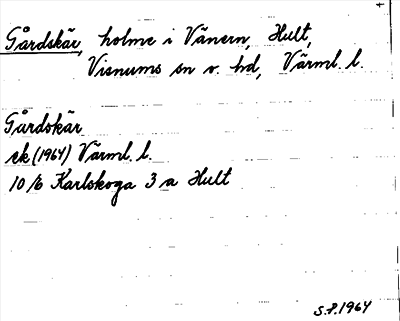 Gårdskär, holme i Vänern, Hult,
Visnums sn o. hd, Värml. l.
Gårdskär
ek (1964) Värml. l.
10/6 Karlskoga 3 a Hult
S.P. 1964